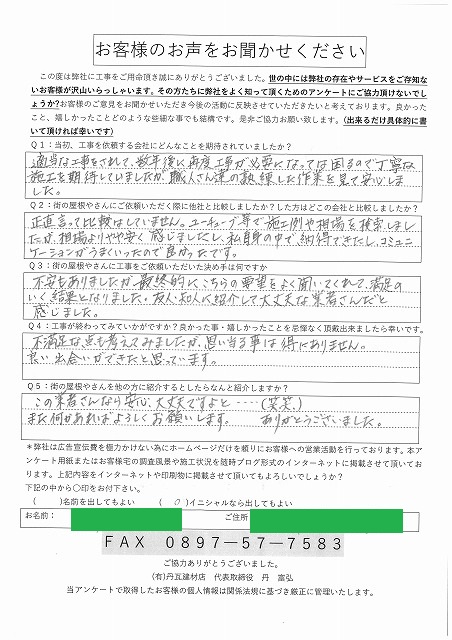 お客様のお声をお聞かせください
この度は弊社に工事をご用命頂き誠にありがとうございました。世の中には弊社の存在やサービスをご存知な
いお客様が沢山いらっしゃいます。その方たちに弊社をよく知って頂くためのアンケートにご協力頂けないでし
ょうか?お客様のご意見をお聞かせいただき今後の活動に反映させていきたいと考えております。良かった
こと、嬉しかったことどのような些細な事でも結構です。是非ご協力お願い致します。(出来るだけ具体的に書
いて頂ければ幸いです)
Q1:当初、工事を依頼する会社にどんなことを期待されていましたか?
適当な工事をされて、数年後に再度工事が必要になっては困るので丁寧な
施工を期待していましたが、職人さん達の熟練した作業を見て安心しま
した。
Q2:街の屋根やさんにご依頼いただく際に他社と比較しましたか?した方はどこの会社と比較しましたか?
正直言って比較はしていません。ユーチューブ等で施工例や相場を検索しまし
たが、相場よりやや安く感じましたし、私自身の中で、納得できたし、コミュニ
ケーションがうまくいったので良かったです。
Q3:街の屋根やさんに工事をご依頼いただいた決め手は何ですか
不安もありましたが最終的にこちらの要望をよく聞いてくれて、満足の
いく結果となりました。友人・知人に紹介して大丈夫な業者さんだと
感じました。
Q4:工事が終わってみていかがですか?良かった事・嬉しかったことを忌憚なく頂戴出来ましたら幸いです。
不満足な点も考えてみましたが、思い当る事は特にありません。
良い出会いができたと思っています。
Q5:街の屋根やさんを他の方に紹介するとしたらなんと紹介しますか?
この業者さんなら安心、大丈夫ですよと‥‥(笑笑)
また何かあればよろしくお願いします。 ありがとうございました。
*弊社は広告宣伝費を極力かけない為にホームページだけを頼りにお客様への営業活動を行っております。本ア
ンケート用紙またはお客様宅の調査風景や施工状況を随時ブログ形式のインターネットに掲載させて頂いて
おります。上記内容をインターネットや印刷物に掲載させて頂いてもよろしいでしょうか?
下記の中から〇印をお付下さい。
( )名前を出してもよい ( 〇 )イニシャルなら出してもよい
お名前: ご住所
FAX 0897-57-7583
ご協力ありがとうございました。
(有)丹瓦建材店 代表取締役 丹 富弘
当アンケートで取得したお客様の個人情報は関係法規に基づき厳正に管理いたします。